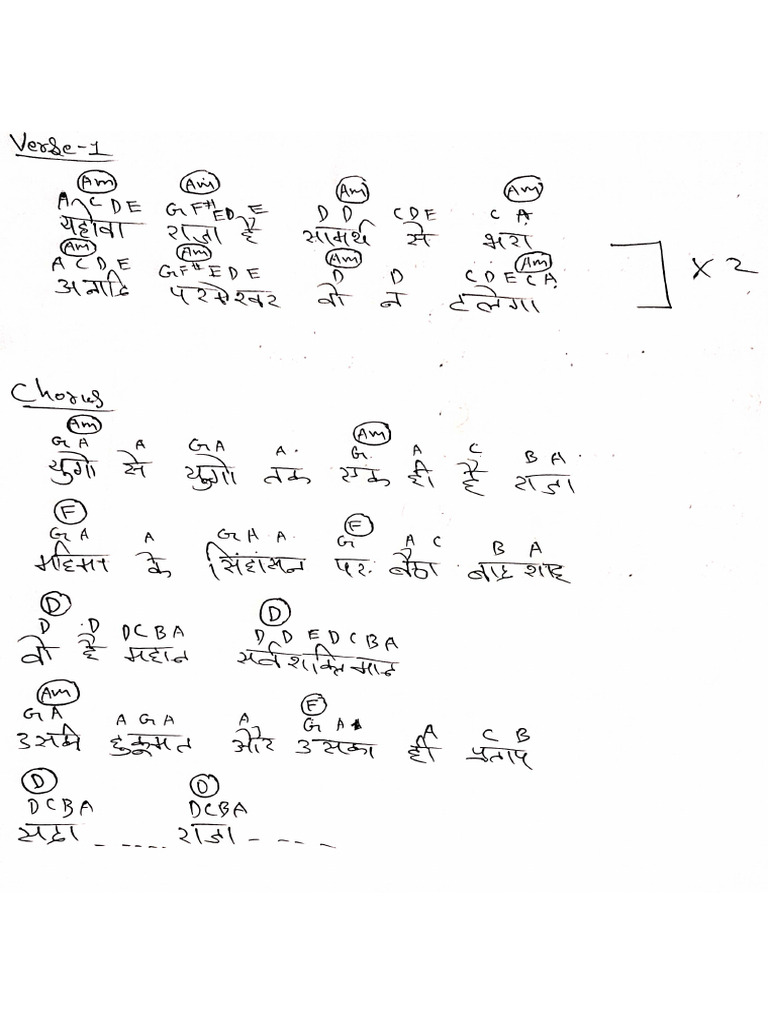 Verse-1
Am Am Am Am
A C D E G F# E D E D D C D E C A
यहोवा राजा है सामर्थ से भरा
Am Am Am Am
A C D E G F# E D E D D C D E C A
अनादि परमेश्वर वो न टलेगा ] x 2
Chorus
Am Am
G A A G A A G A C B A
युगो से युगो तक एक ही है राजा
F F
G A A G A A G A C B A
महिमा के सिंहांसन पर बैठा बादशाह
D D
D D D C B A D D E D C B A
वो है महान सर्वशक्तिमान
Am F
G A A G A A G A A C B
उसकी हुकूमत और उसका ही प्रताप
D D
D C B A D C B A
सदा - - - - - राजा - - - - -